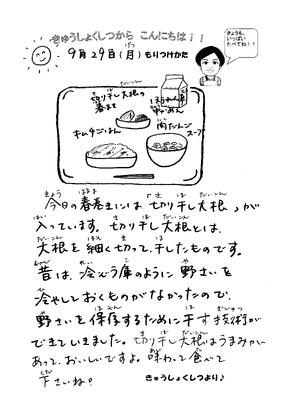 きゅうしょくしつから こんにちは！！
9月29日(月)もりつけかた
きょうも、
いっぱい
たべてね！！
切り干し大根の
春まき
キムチごはん
肉だんご
スープ
今日の春巻きには「切り干し大根」が
入っています。切り干し大根とは、
大根を細く切って、干したものです。
昔は、冷ぞう庫のように野さいを
冷やしておくものがなかったので、
野さいを保存するために干す技術が
できていきました。切り干し大根はうまみが
あって、おいしいですよ。味わって食べて
下さいね♪
きゅうしょくしつより♪